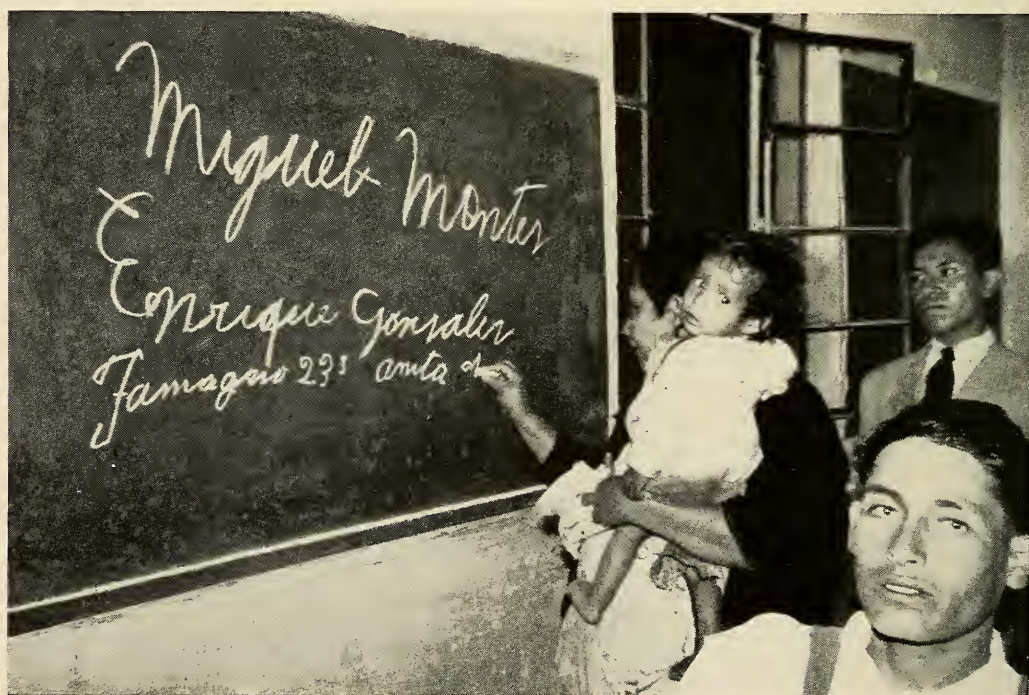 Miguel Montes
Enrique Gonzalez
Tamagno 233 anita